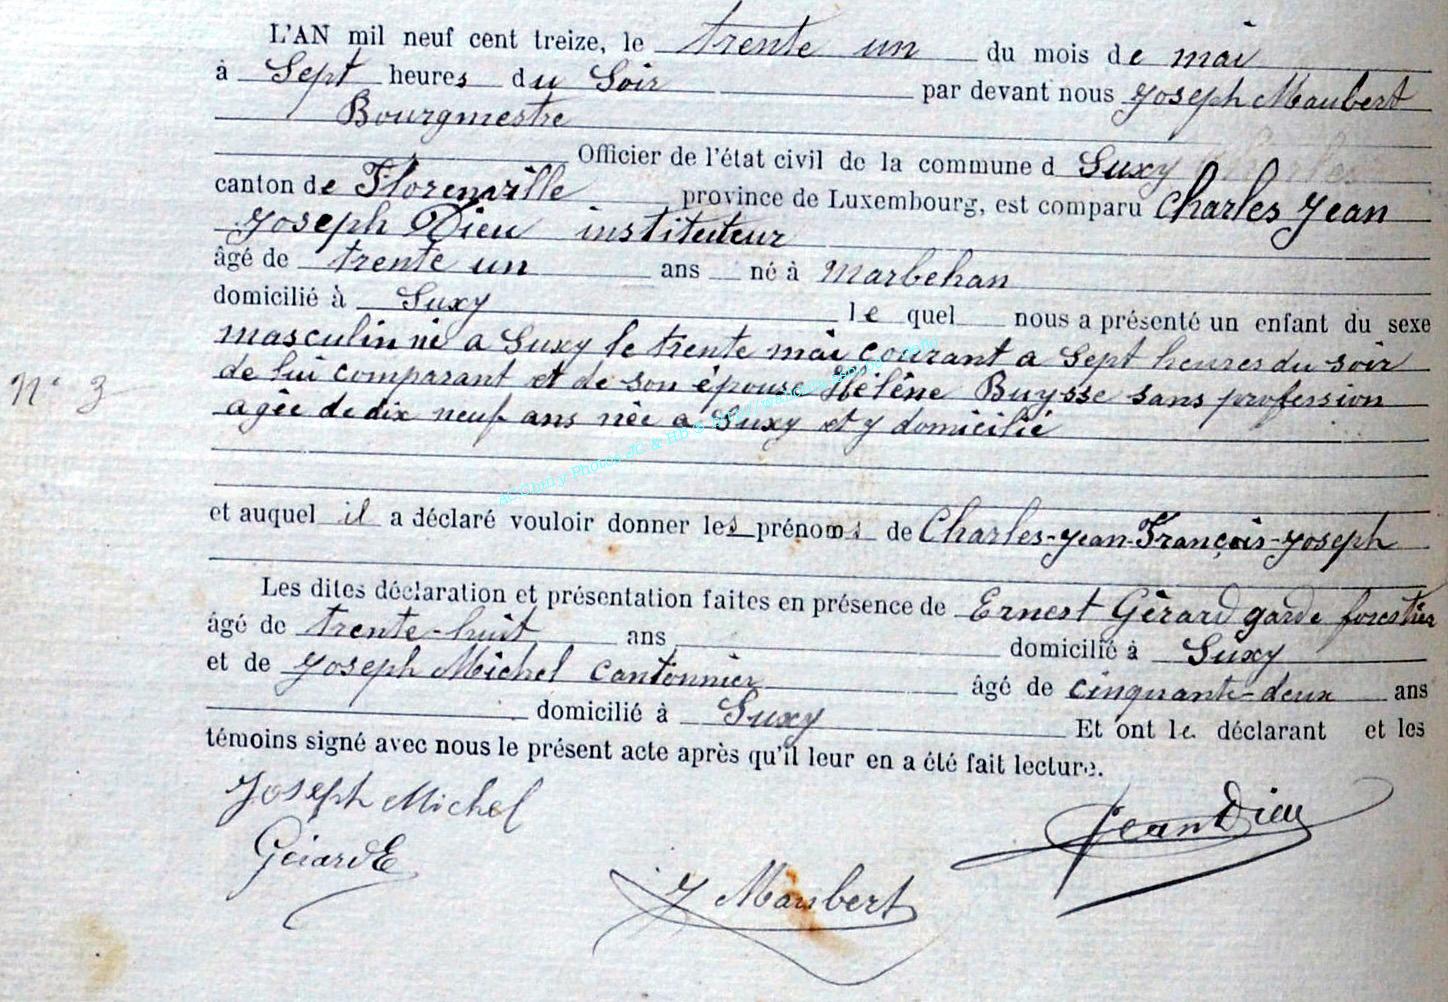 L'AN mil neuf cent treize, le trente un du mois de mai
à Sept heures du Soir par devant nous Joseph Maubert
Bourgmestre
Officier de l'état civil de la commune d Suxy
canton de Florenville province de Luxembourg, est comparu Charles Jean
Joseph Dieu instituteur
âgé de trente un ans né à Marbehan
domicilié à Suxy le quel nous a présenté un enfant du sexe
masculin né a Suxy le trente mai courant a Sept heures du soir
de lui comparant et de son épouse Hélène Buysse sans profession
N° 3
agée de dix neuf ans née a Suxy et y domicilié
et auquel il a déclaré vouloir donner les prénoms de Charles-Jean-François-Joseph
Les dites déclaration et présentation faites en présence de Ernest Gérard garde forestier
âgé de trente-huit ans domicilié à Suxy
et de Joseph Michel Cantonnier âgé de cinquante-deux ans
domicilié à Suxy Et ont le déclarant et les
témoins signé avec nous le présent acte après qu'il leur en a été fait lecture.
Joseph Michel
Jean Dieu
Gérard E
J Maubert